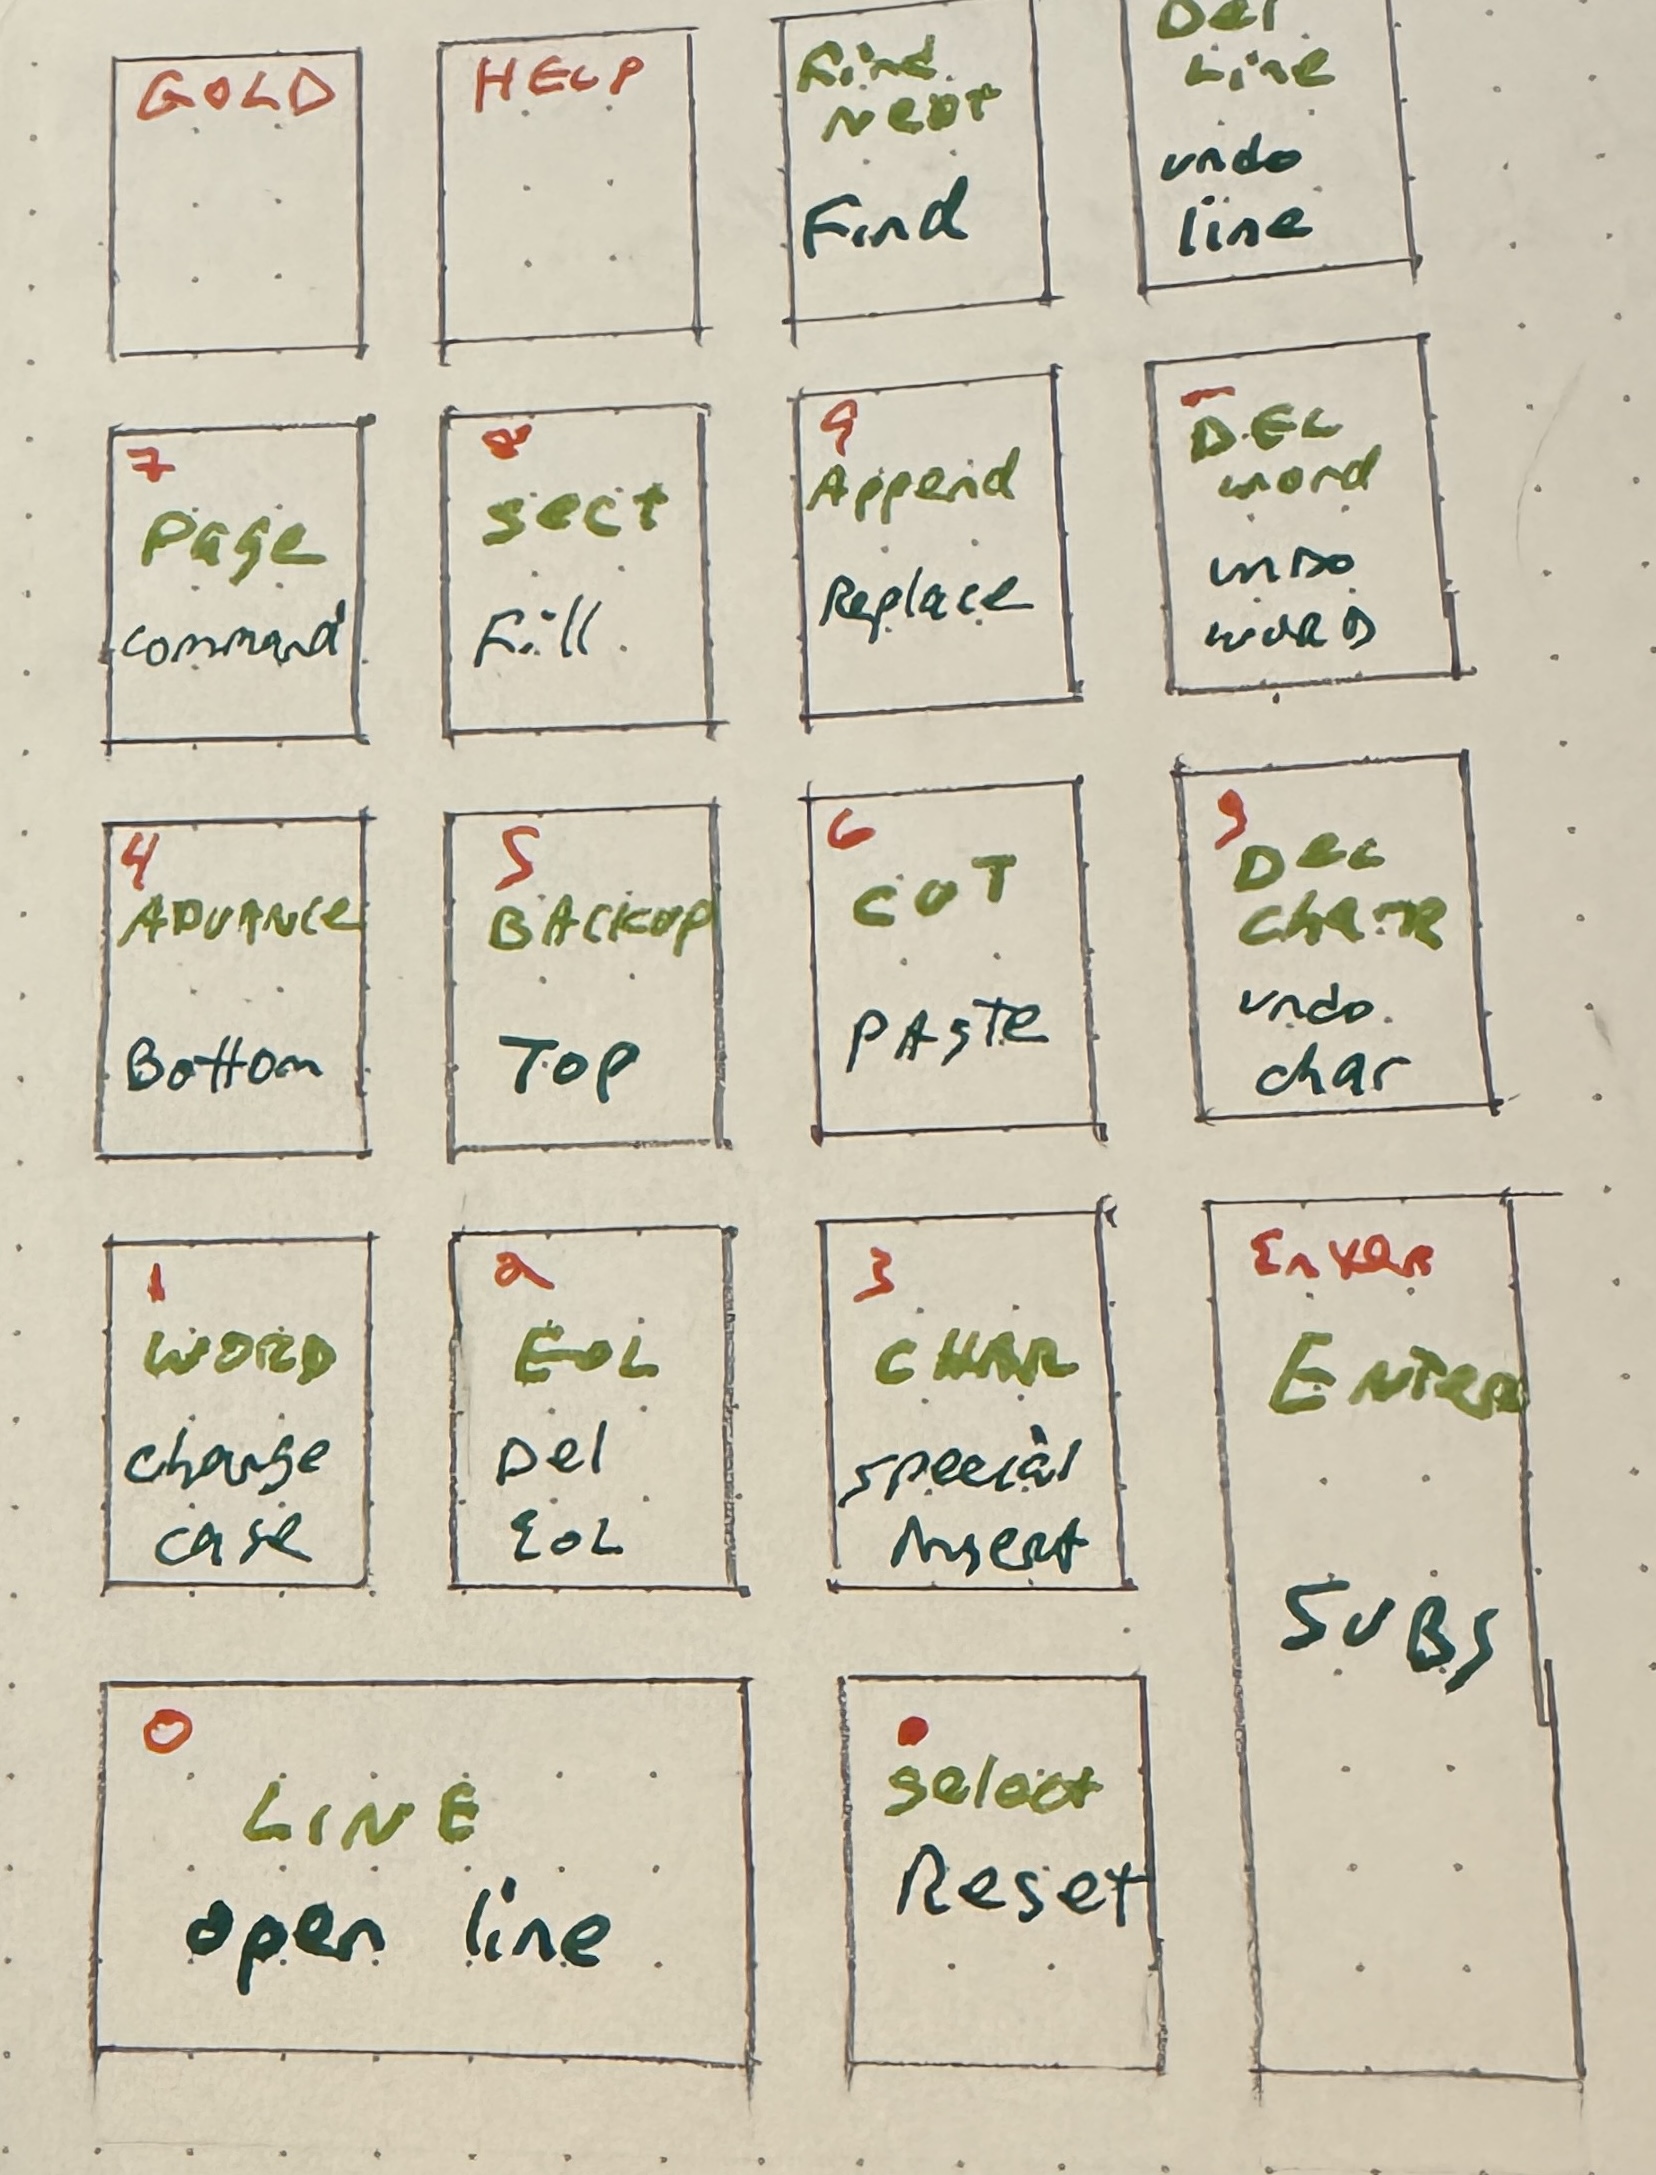 GOLD
HELP
Find
Next
Find
Del
Line
undo
line
7
Page
command
8
Sect
Fill
9
Append
Replace
-
DEL
word
undo
WORD
4
ADVANCE
Bottom
5
BACKUP
Top
6
CUT
PASTE
,
Del
undo
char
1
WORD
change
case
2
EOL
Del
EOL
3
CHAR
special
Insert
Enter
Enter
SUBS
0
LINE
open line
.
select
Reset